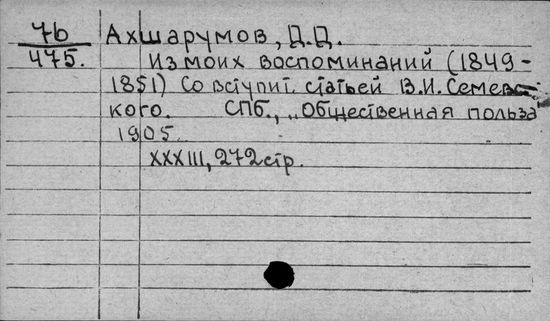 7b Ахшарумов, Д.Д.
475. Из моих воспоминаний (1849-
1851) Со вступит. статьей В.И. Семевс-
кого. СПб., „Общественная польза"
1905
XXXIII, 272 стр.